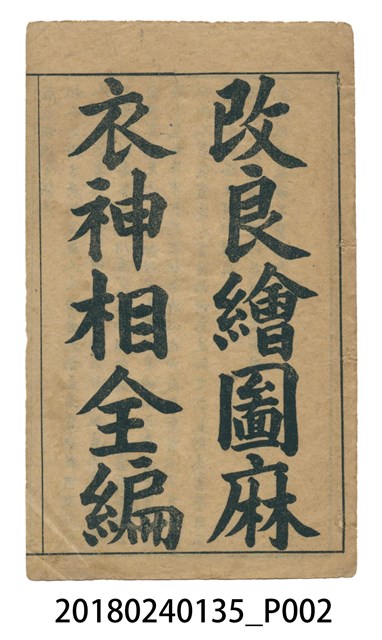 改良繪圖麻
衣神相全編
20180240135_P002